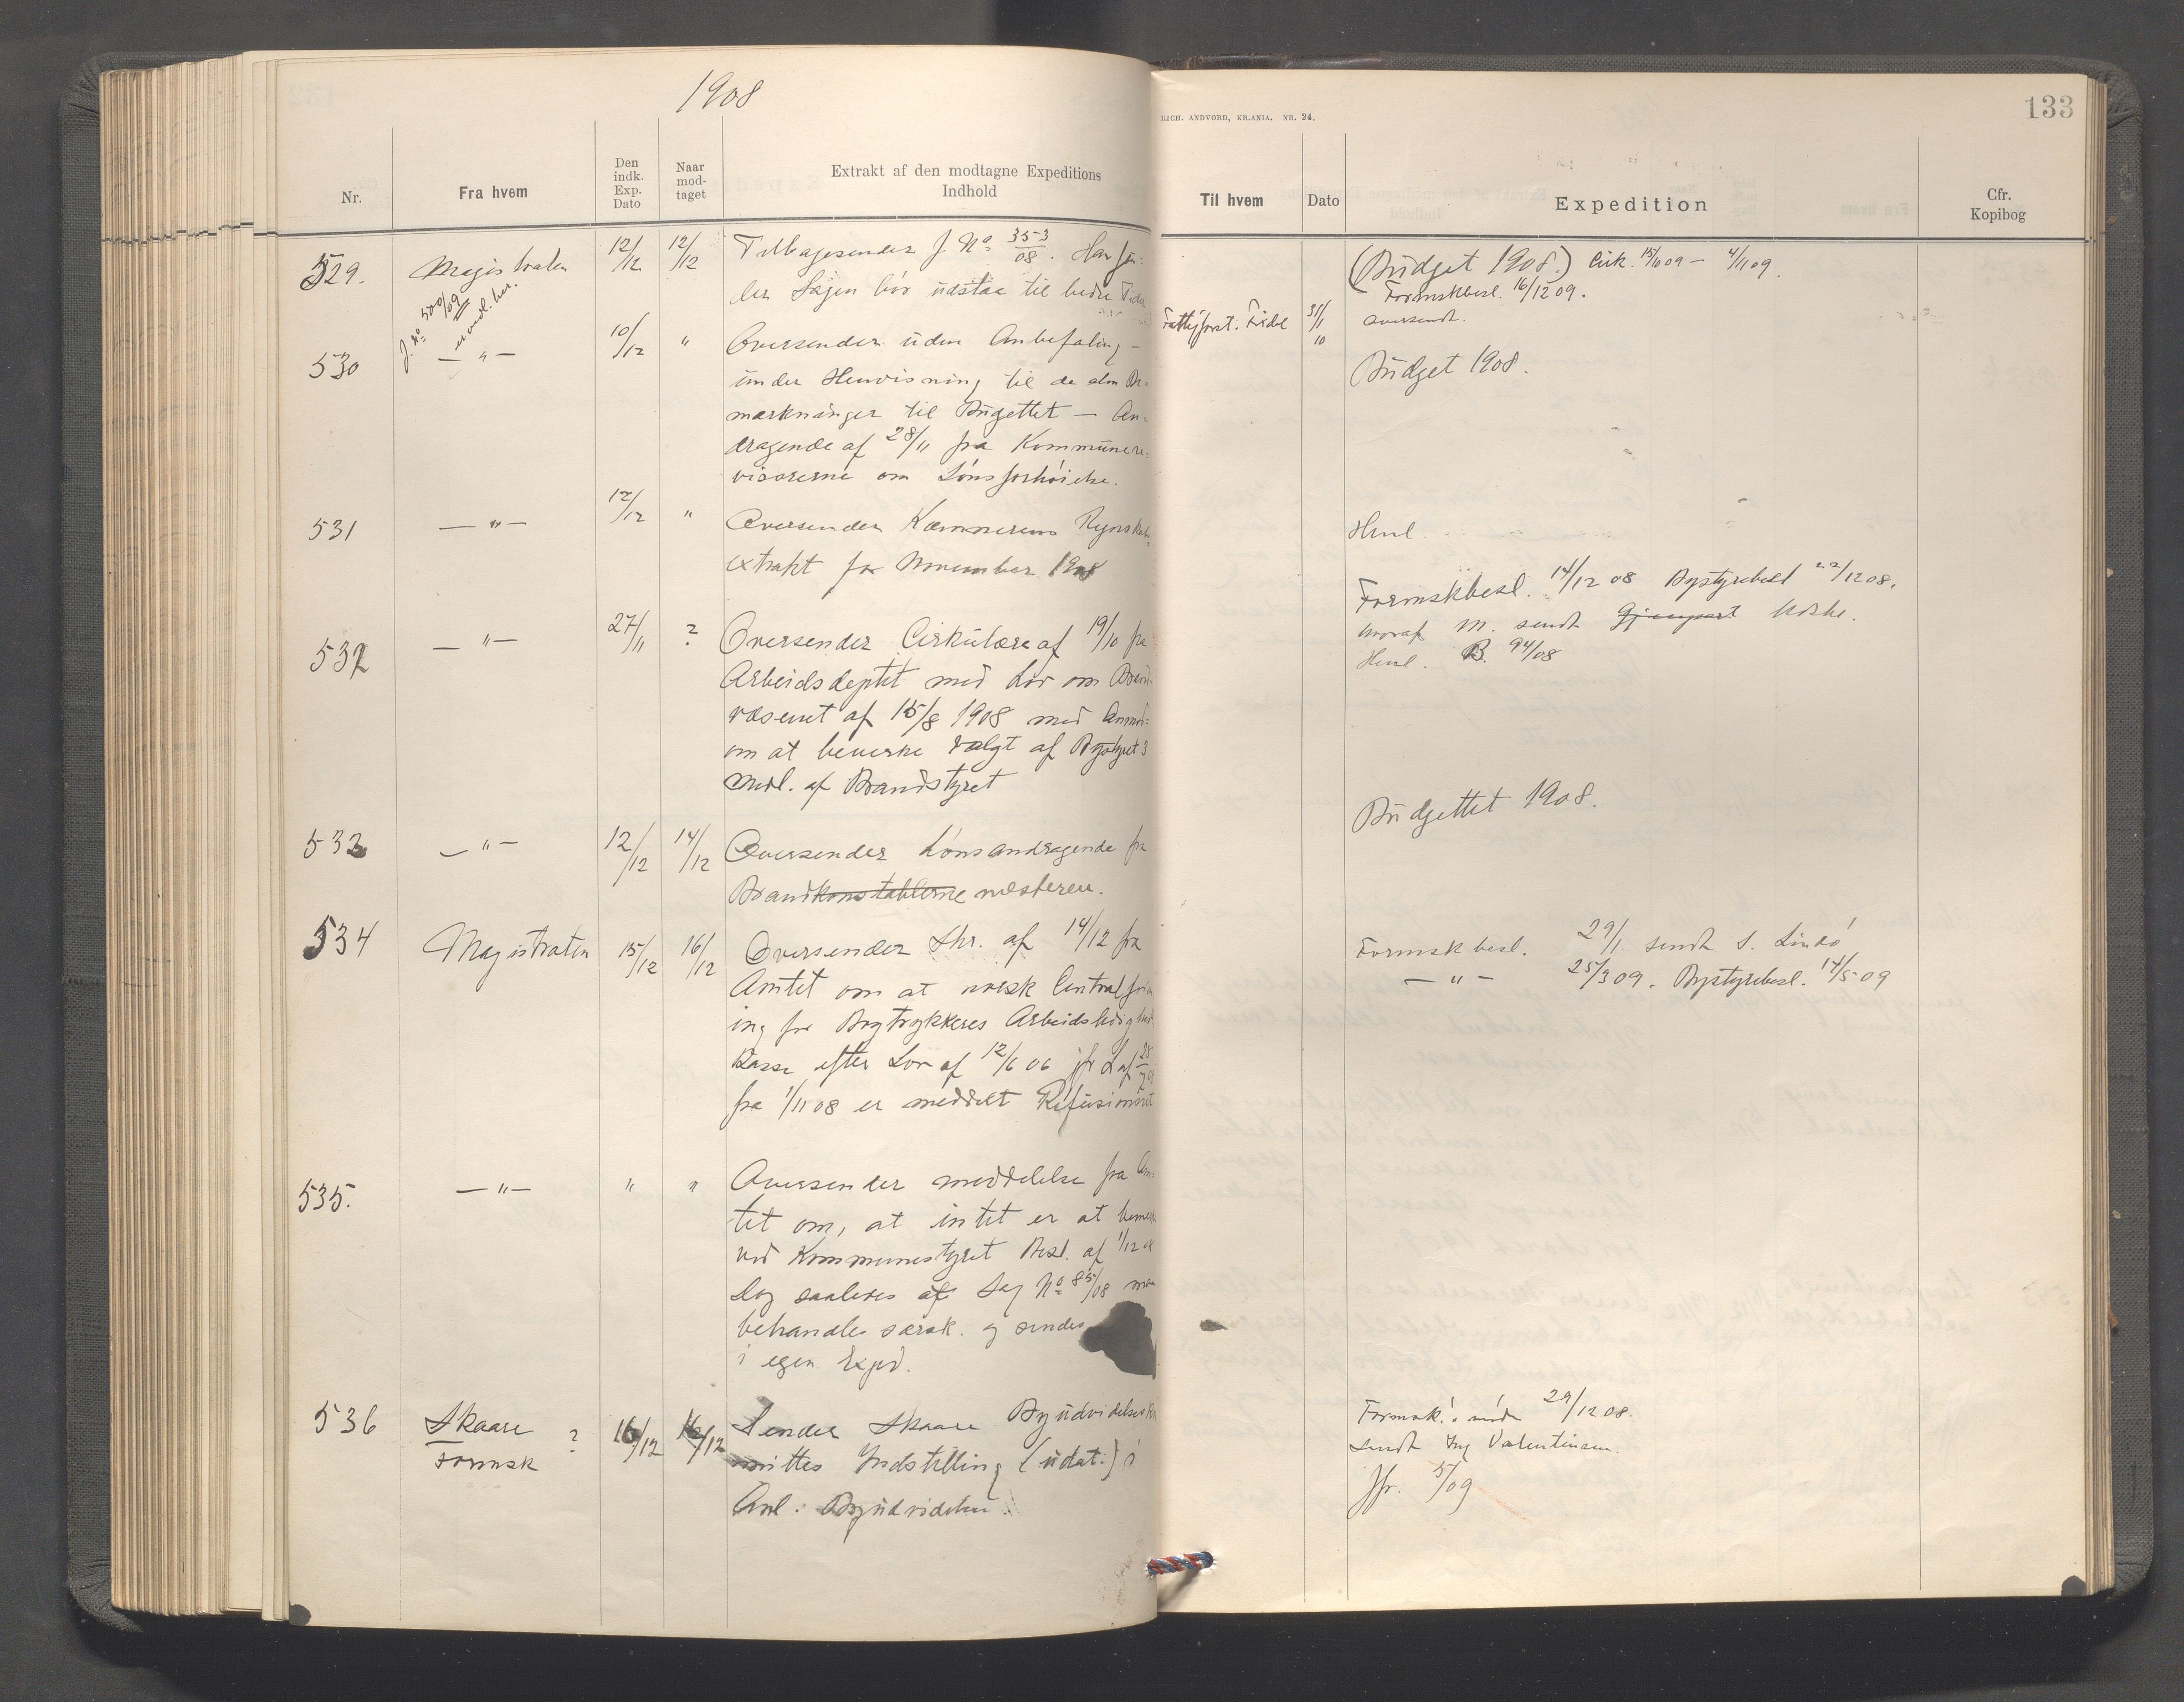 1908
Nr.
Fra hvem
Den indk. Exp. Dato
Naar mod- taget
Extrakt af den modtagne Expeditions Indhold
529. Magistraten 12/12 12/12 Tilbagesender J. No 353/08.
ler Sagen bør udstaa til bedre
J. No 500/09
530 — " — 10/12 " Oversender uden Anbefaling —
under Henvisning til de alm Be-
mærkninger til Budgettet — An-
dragende af 28/11 fra Kommunere-
visorerne om Lønsforhøielse.
531 — " — 12/12 " Oversender Kæmnerens Regnskabs
extrakt for November 1908
532 — " — 27/11 ? Oversender Cirkulære af 19/10 fra
Arbeidsdeptet med Lov om Brand-
væsenet af 15/8 1908 med Anmod-
om at bevirke valgt af Bystyret 3
Medl. af Brandstyret
533 — " — 12/12 14/12 Oversender Lønsandragende fra
Brandkonstablerne mesteren.
534 Magistraten 15/12 16/12 Oversender Skr. af 14/12 fra
Amtet om at norsk Centralforen
ing for Bogtrykkeres Arbeidsledighed
Kasse efter Lov af 12/6 06 jfr L af 25/7 08
fra 1/11 08 er meddelt Refusionsret
535. — " — " " Oversender meddelelse fra Am-
tet om, at intet er at bemerke
ved Kommunestyret Besl. af 1/12 08
Dog saaledes at Sag No 85/08 maa
behandles særsk. og sendes
i egen Exped.
536 Skaare Formsk ? 16/12 16/12 Sender Skaare Byudvidelseskom
mittes Indstilling (udat.) i
Anl. Byudvidelsen
RICH. ANDVORD, KR.ANIA. NR. 24.
133
Til hvem
Dato
Expedition
Cfr. Kopibog
(Budget 1908.) Cirk. 15/10 09 — 4/11 09.
Formskbesl. 16/12 09.
Fattigforst. 31/1 10 oversendt.
Budget 1908.
Henl.
Formskbesl. 14/12 08 Bystyrebesl 22/12 08,
hvoraf M. sendt Gjenpart Udskr.
Henl. B. 94/08
Budgettet 1908.
Formskbesl. 29/1 sendt S. Lindø
— " — 25/3 09. Bystyrebesl. 14/5 09
Formsk. i møde 29/12 08.
sendt Ing Valentinsen.
Jfr. 5/09